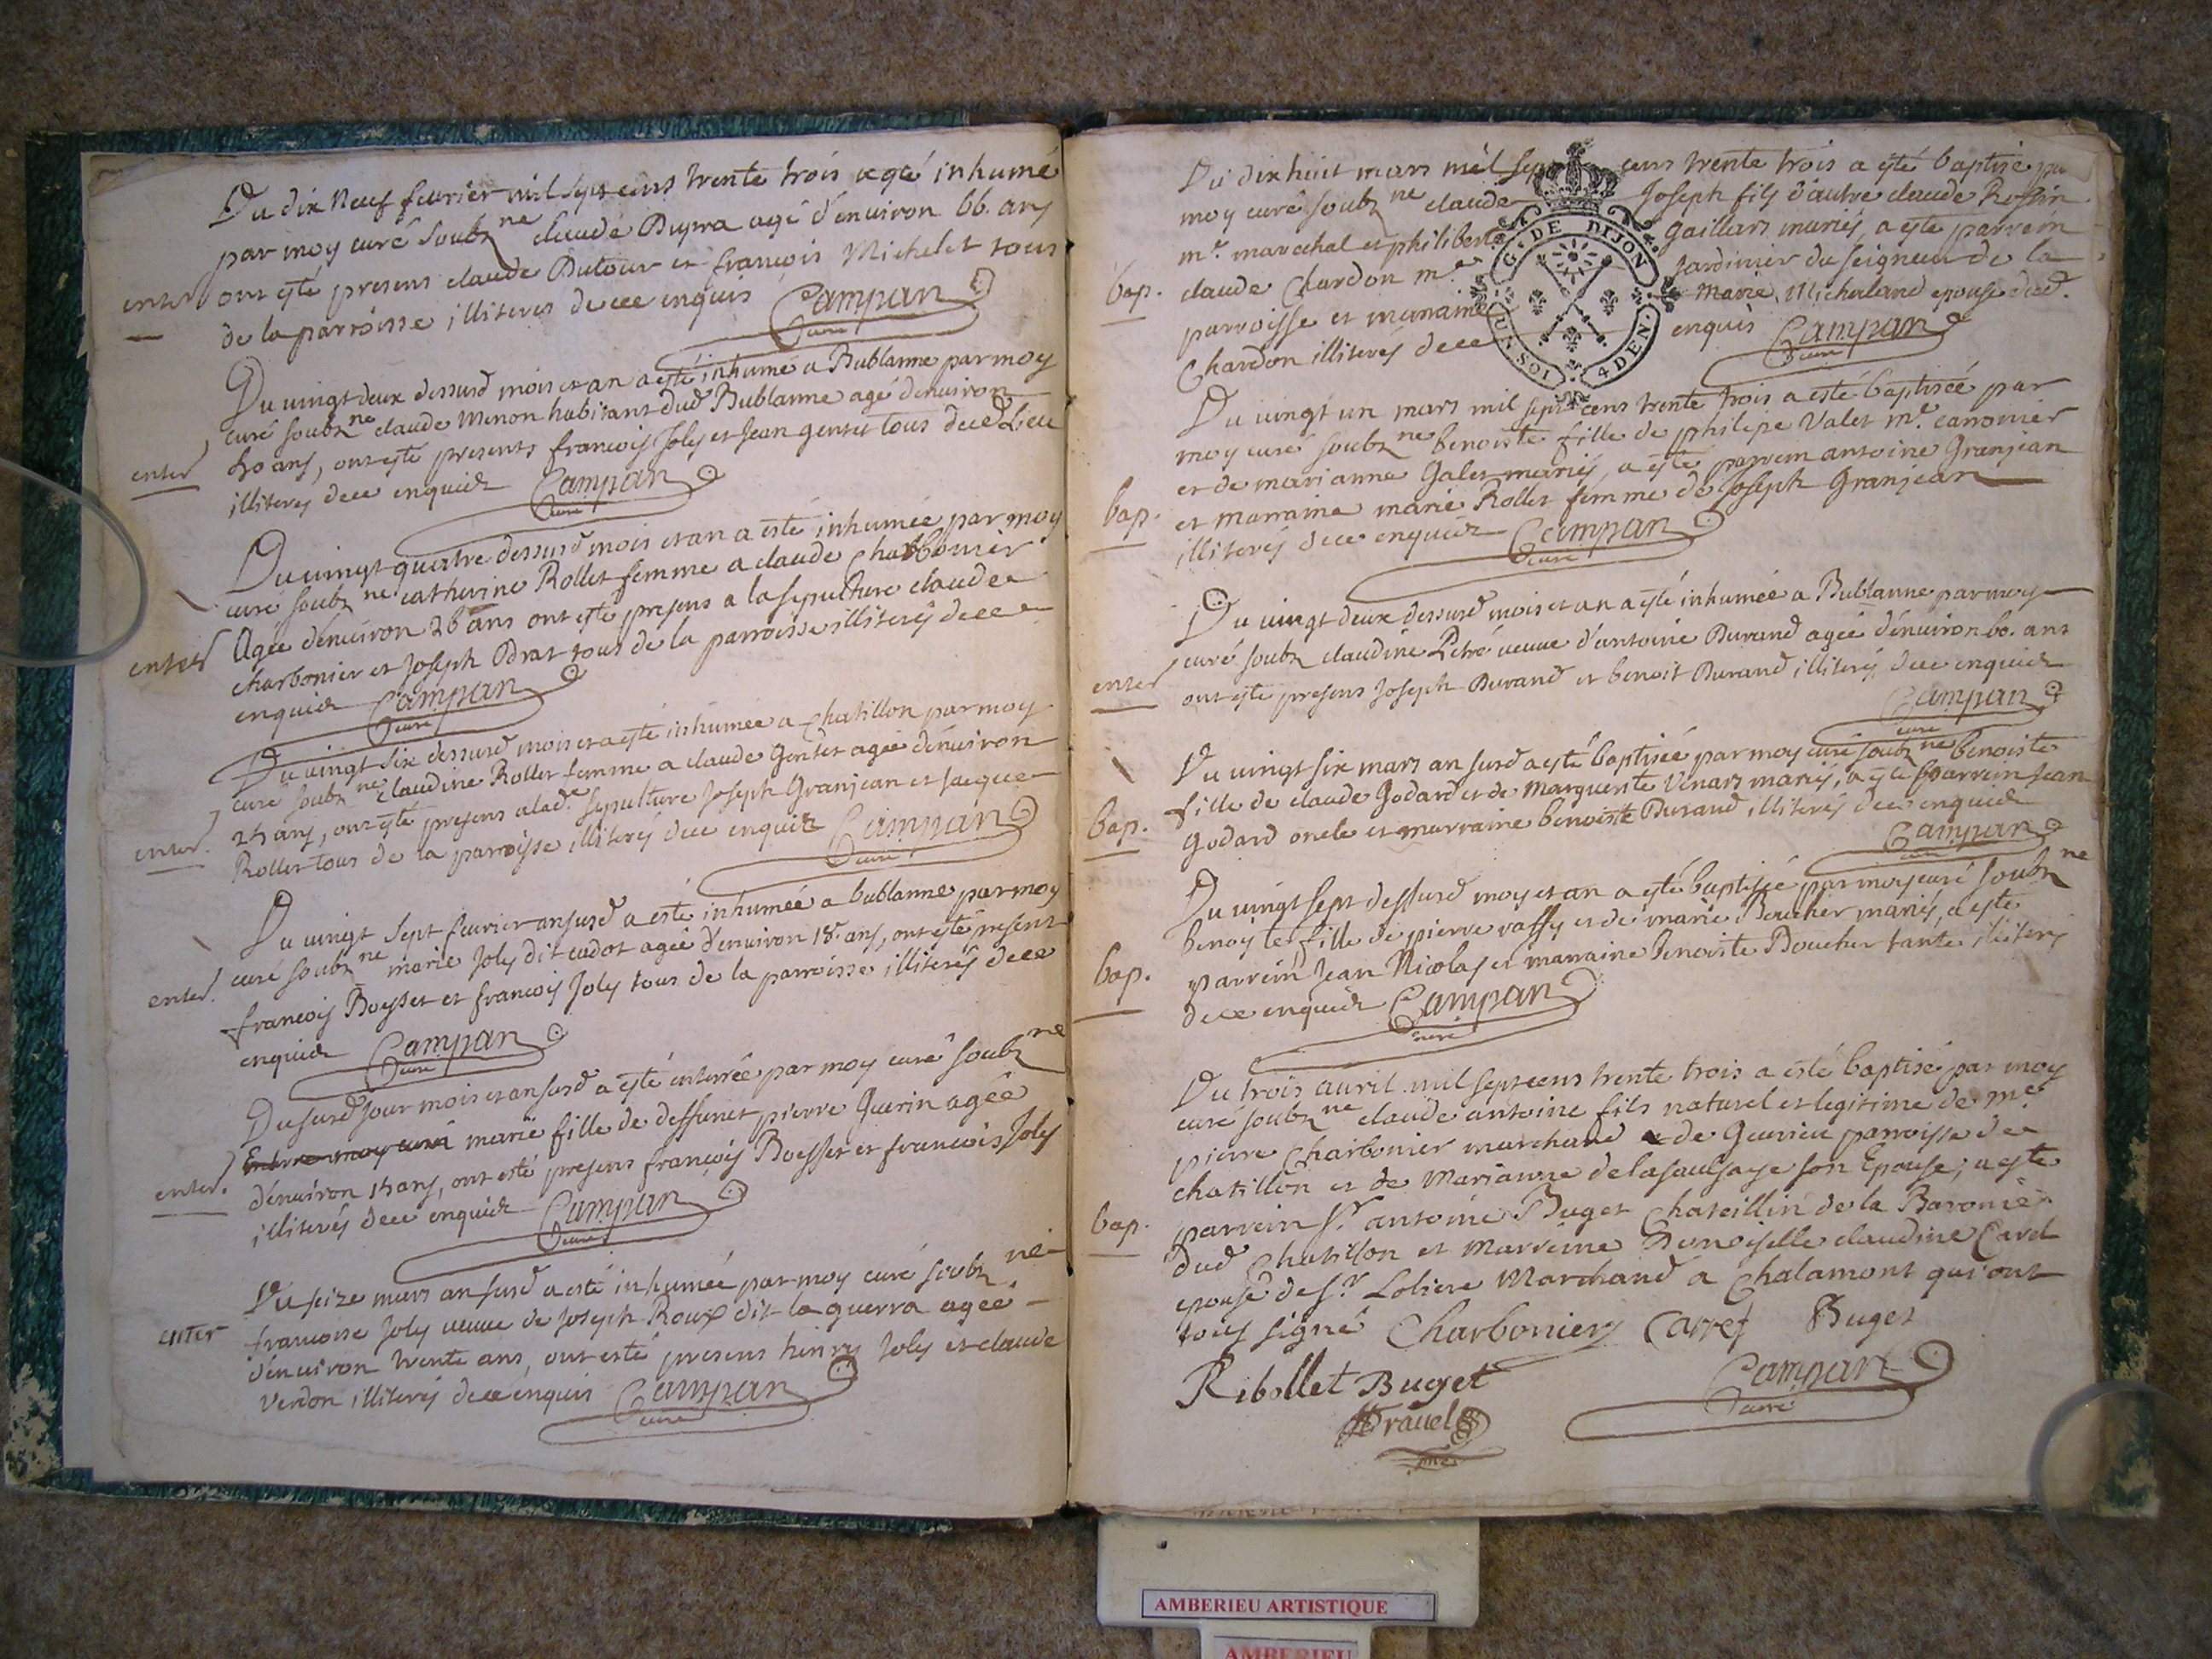 Du dix Neuf feurier mil sept cens trente trois a esté inhumé
par moy curé soubz ne claude Dupra agé d'enuiron 66. ans
enter ont esté presens claude Dutour et francois Michelet tous
de la parroisse illiteres de ce enquis Campan
curé
Du uingt deux dessusd mois et an a esté inhumé a Bublanne par moy
curé soubz ne claude Menon habitant dud Bublanne agé d'enuiron
enter ans, ont esté presents francois Joly et Jean gentet tous dud Lieu
illiterés de ce enquidz Campan
curé
Du uingt quatre dessusd mois et an a esté inhumée par moy
curé soubz ne catherine Rollet femme a claude Charbonier
enter Agée d'enuiron 26 ans ont esté presens a la sepulture claude
charbonier et Joseph Odrat tous de la parroisse illiterés de ce
enquidz Campan
curé
Du uingt six dessusd mois et a esté inhumée a Chatillon par moy
curé soubz ne Claudine Rollet femme a claude Gentet agée d'enuiron
enter. ans, ont esté presens a lad. sepulture Joseph Granjean et Jacque
Rollet tous de la parroisse illiterés de ce enquidz Campan
curé
Du uingt sept feurier an susd a esté inhumée a bublanne par moy
enter. curé soubz ne marie Joly dit cadot agée d'enuiron 18. ans, ont esté présent
francois Boysset et francois Joly tous de la parroisse illiterés de ce
enquidz Campan
curé
Du susd Jour mois et an susd a esté enterrée par moy curé soubz ne
enter. marie fille de deffunct pierre Guerin agée
d'enuiron ans, ont esté presens francois Boesset et francois Joly
illiterés de ce enquidz Campan
curé
Du seize mars an susd a esté inhumée par moy curé soubz ne
enter francoise Joly ueuue de Joseph Roux dit la guerra agée
d'enuiron trente ans, ont esté presens henry Joly et claude
Verdon illiterés de ce enquis Campan
curé
Du dix huit mars mil sept cens trente trois a esté baptisé par
moy curé soubz ne claude Joseph fils d'autre claude Roffin
mr. marechal et philiberte Gaillars mariés, a esté parrein
bap. claude Chardon me. Jardinier du seigneur de la
parroisse et maraine Marie Micheland epouse dud.
Chardon illiterés de ce enquis Campan
curé
G. DE DIJON
4 DEN.
U. SOI
Du uingt un mars mil sept cens trente trois a esté baptisée par
moy curé soubz ne benoiste fille de philipe Valet me. canonier
et de marianne Galet mariés, a esté parrein antoine Granjean
bap. et marraine marie Rollet femme de Joseph Granjean
illiterés de ce enquidz Campan
curé
Du uingt deux dessusd mois et an a esté inhumée a Bublanne par moy
curé soubz claudine ueuue d'antoine Durand agée d'enuiron 60. ans
enter ont esté presens Joseph Durand et benoit Durand illiterés de ce enquidz
Campan
curé
Du uingt six mars an susd a esté baptisée par moy curé soubz ne benoiste
fille de claude Godard et de Marguerite Venars mariés, a esté parrein Jean
bap. Godard oncle et marraine benoiste Durand illiterés de ce enquidz
Campan
curé
Du uingt sept dessusd moy et an a esté baptisée par moy curé soubz ne
benoyste fille de pierre vassy et de marie Boucher mariés, a esté
bap. parrein Jean Nicolas et marraine benoiste Boucher tante illiterés
de ce enquidz Campan
curé
Du trois auril mil sept cens trente trois a esté baptisé par moy
curé soubz ne claude antoine fils naturel et legitime de me.
pierre Charbonier marchand de Gevrieu parroisse de
chatillon et de Marianne de lasaulsaye son Epouse, a esté
bap. parrein sr. antoine Buget Chateillin de la Baronie
dud Chatillon et Marreine Demoiselle claudine Carel
epouse de sr. Loliere Marchand a Chalamont qui ont
tous signé Charbonier Carrel Buget
Ribollet Buget Campan
Drauel curé
AMBERIEU ARTISTIQUE
AMBERIEU